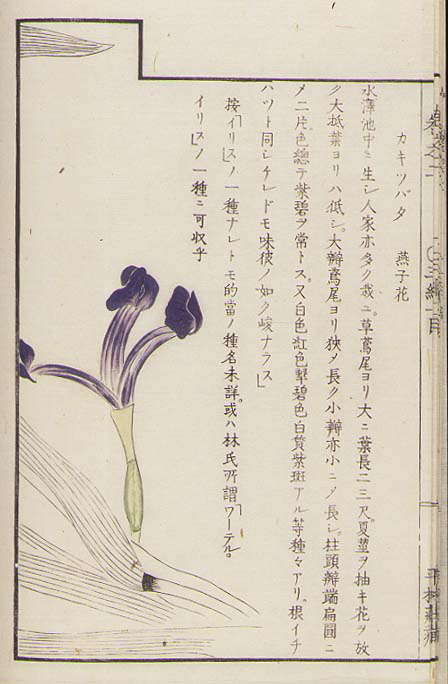 カキツバタ 燕子花
水澤池中ニ生シ人家亦多ク栽ユ。草鳶尾ヨリ大ニ葉長二三尺夏莖ヲ抽キ花ヲ放
ク大抵葉ヨリハ低シ。大瓣鳶尾ヨリ狹メ長ク小瓣亦小ニメ長シ。柱頭瓣端扁圓ニ
メ二片。色總テ紫碧ヲ常トス。又白色紅色翠碧色白質紫斑アル等種々アリ。根イチ
ハツト同シケレドモ味彼ノ如ク峻ナラス」
按「イリス」ノ一種ナレトモ的當ノ種名未詳。或ハ林氏所謂「ワーテル。
イリス」ノ一種ニ可収乎